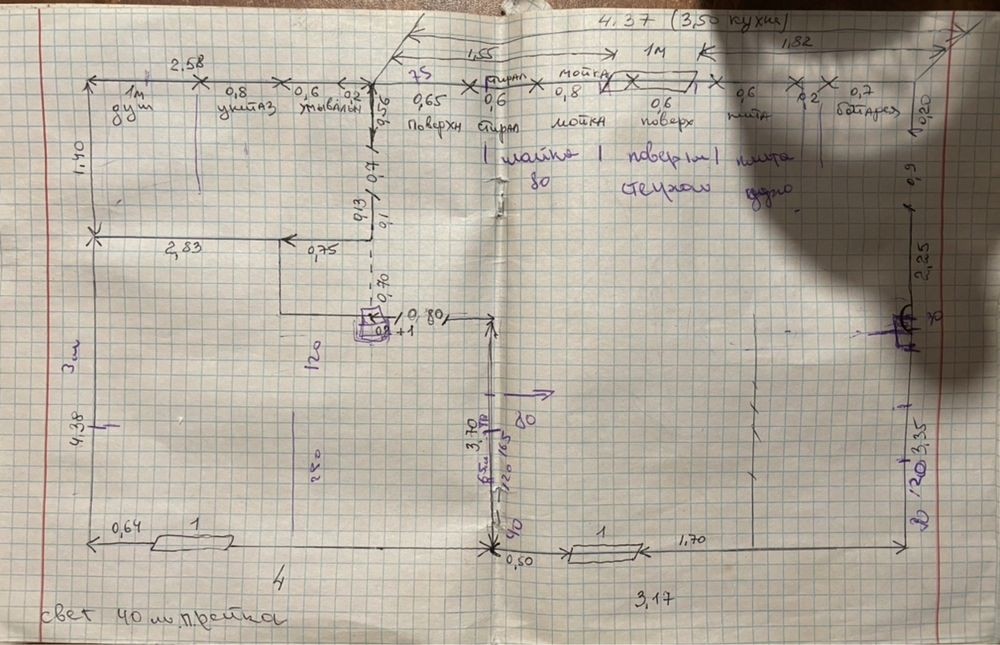 4.37 (3,50 кухня)
1,55
1м
1,82
2,58
75
стирал
мойка
1м
0,8
0,6
0,2
0,65
0,6
0,8
0,6
0,6
0,2
0,7
душ
унитаз
умывальн
поверхн
стирал
мойка
поверх
плита
батарея
0,56
0,20
мойка
поверхн
плита
80
1,40
0,7
0,9
0,13
0,1
2,83
0,75
0,70
2,25
0,80
30
0,2+1
3м
120
80
4,38
3,70
3,35
250
120 165
120
40
0,64
1
1
0,50
1,70
4
3,17
свет 40 м,